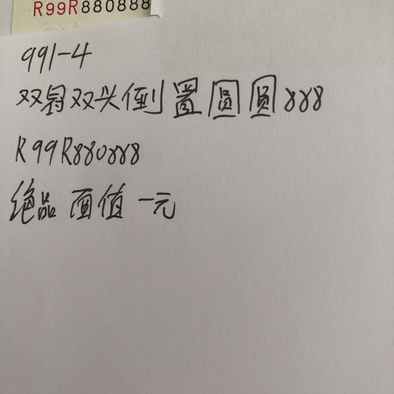 R99R880888
991-4
双冠双头倒置圆圆888
R99R880888
绝品 面值一元